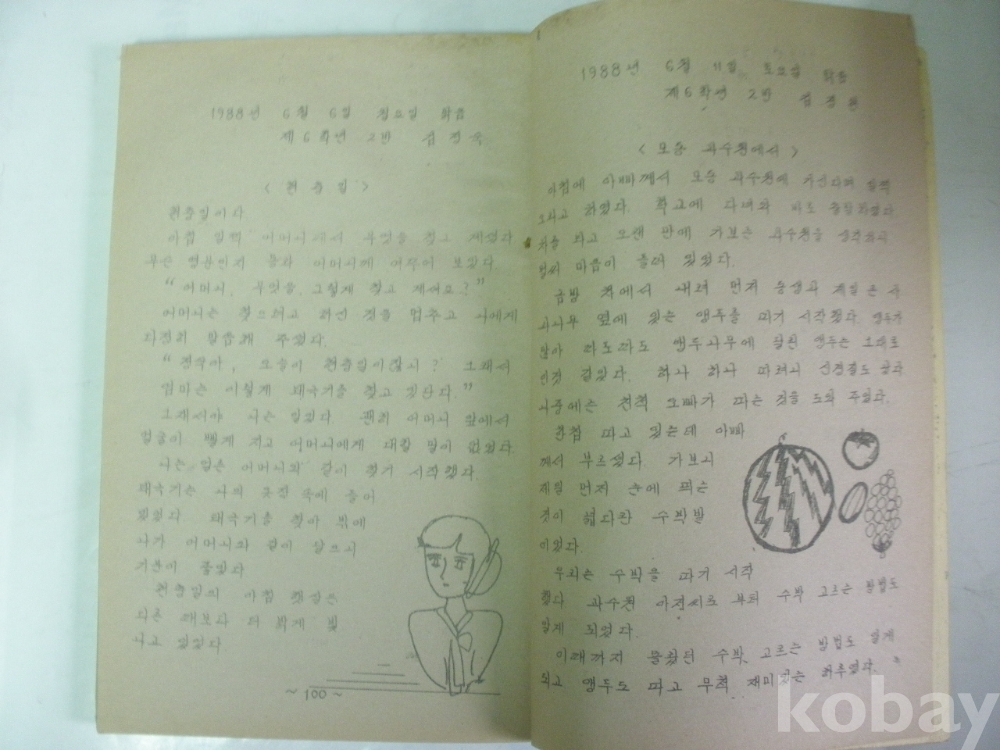 1988년 6월 6일 월요일 맑음
제6학년 2반 김정숙
< 현충일 >
현충일이다.
아침 일찍 어머니께서 무엇을 찾고 계셨다.
무슨 영문인지 몰라 어머니께 여쭈어 보았다.
"어머니, 무엇을 그렇게 찾고 계셔요?"
어머니는 찾으려고 하던 것을 멈추고 나에게
다정히 말씀해 주셨다.
오늘이 현충일이잖니? 그래서
엄마는 이렇게 태극기를 찾고 있단다"
그래서야 나는 알았다. 괜히 어머니 앞에서
얼굴이 빨게 지고 어머니에게 대할 말이 없었다.
나는 얼른 어머니와 같이 찾기 시작했다.
태극기는 나의 옷장 속에 들어
있었다. 태극기를 찾아 밖에
나가 어머니와 같이 달으니
기분이 좋았다
현충일의 아침 햇살은
다른 때보다 더 밝게 빛
나고 있었다
~ 100 ~
1988년 6월 11일 토요일 맑음
제6학년 2반
< 모충 과수원에서 >
아침에 아빠께서 모충 과수원에 가신다며 일찍
오라고 하셨다. 학교에 다녀와 바로 출발하였다.
차를 타고 오랜 만에 가보는 과수원을 생각하니
벌써 마음이 들떠 있었다.
금방 차에서 내려 먼저 동생과 제일 큰 나
나무 옆에 있는 앵두를 따기 시작했다. 앵두가
많아 따도따도 앵두나무에 달린 앵두는 그대로
인것 같았다. 하나 하나 따려니 신경질도 났다
나중에는 친척 오빠가 따는 것을 도와 주었다.
한참 따고 있는데 아빠
께서 부르셨다. 가보니
제일 먼저 눈에 띄는
것이 넓다란 수박밭
이었다.
우리는 수박을 따기 시작
했다. 과수원 아저씨로 부터 수박 고르는 방법도
알게 되었다.
이때까지 몰랐던 수박 고르는 방법도 알게
되고 앵두도 따고 무척 재미있는 하루였다.
kobay